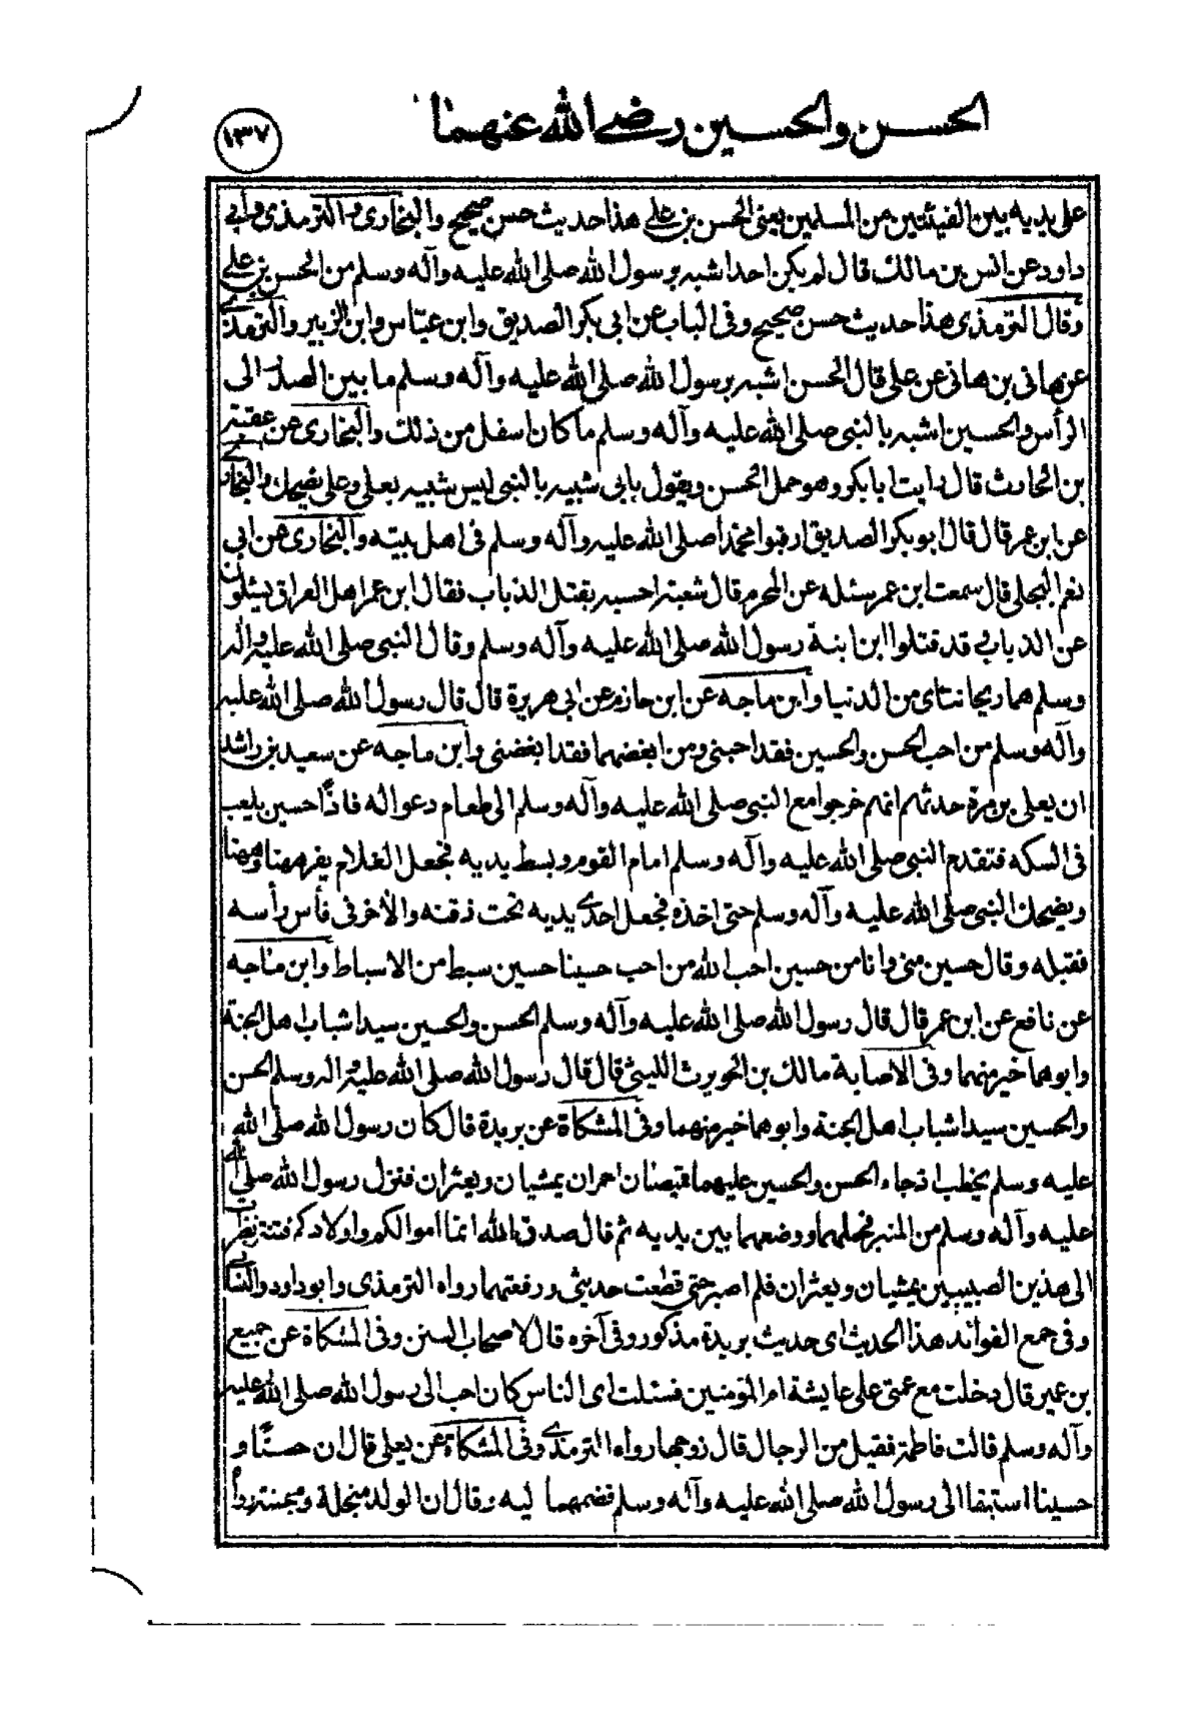 الحسن والحسين رضي الله عنهما
١٣٧
على يديه بين الفئتين من المسلمين يعنى الحسن بن على هذا حديث حسن صحيح والبخارى والترمذى وأبى
داود عن انس بن مالك قال لم يكن احد اشبه برسول الله صلى الله عليه وآله وسلم من الحسن بن على
وقال الترمذى هذا حديث حسن صحيح وفى الباب عن ابى بكر الصديق وابن عباس وابن الزبير والترمذى
عن هانى بن هانى عن على قال الحسن اشبه برسول الله صلى الله عليه وآله وسلم ما بين الصدر الى
الرأس والحسين اشبه بالنبى صلى الله عليه وآله وسلم ما كان اسفل من ذلك والبخارى عن عقبة
بن الحارث قال رايت ابابكر وهو حمل الحسن ويقول بابى شبيه بالنبى ليس شبيه بعلى وعلى يضحك والبخارى
عن ابن عمر قال قال ابو بكر الصديق ارقبوا محمدا صلى الله عليه وآله وسلم فى اهل بيته والبخارى عن ابى
نعم البجلى قال سمعت ابن عمر سئله عن المحرم قال شعبة احسبه بقتل الذباب فقال ابن عمر اهل العراق يسئلون
عن الذباب قد قتلوا ابن ابنة رسول الله صلى الله عليه وآله وسلم وقال النبى صلى الله عليه وآله
وسلم هما ريحانتاى من الدنيا وابن ماجه عن ابن حازم عن ابى هريرة قال قال رسول الله صلى الله عليه
وآله وسلم من احب الحسن والحسين فقد احبنى ومن ابغضهما فقد ابغضنى وابن ماجه عن سعيد بن راشد
ان يعلى بن مرة حدثهم انهم خرجوا مع النبى صلى الله عليه وآله وسلم الى طعام دعوا له فاذا حسين يلعب
فى السكه فتقدم النبى صلى الله عليه وآله وسلم امام القوم وبسط يديه فجعل الغلام يفر ههنا وههنا
ويضحك النبى صلى الله عليه وآله وسلم حتى اخذه فجعل احدى يديه تحت ذقنه والاخر فى فأس رأسه
فقبله وقال حسين منى وانا من حسين احب الله من احب حسينا حسين سبط من الاسباط وابن ماجه
عن نافع عن ابن عمر قال قال رسول الله صلى الله عليه وآله وسلم الحسن والحسين سيدا شباب اهل الجنة
وابوهما خير منهما وفى الاصابة مالك بن الحويرث الليثى قال قال رسول الله صلى الله عليه وآله وسلم الحسن
والحسين سيدا شباب اهل الجنة وابوهما خير منهما وفى المشكاة عن بريدة قال كان رسول الله صلى الله
عليه وسلم يخطب اذ جاء الحسن والحسين عليهما قميصان احمران يمشيان ويعثران فنزل رسول الله صلى الله
عليه وآله وسلم من المنبر فحملهما ووضعهما بين يديه ثم قال صدق الله انما اموالكم واولادكم فتنة نظرت
الى هذين الصبيين يمشيان ويعثران فلم اصبر حتى قطعت حديثى ورفعتهما رواه الترمذى وابو داود والنسائى
وفى جمع الفوائد هذا الحديث اى حديث بريدة مذكور وفى آخره قال لاصحاب السنن وفى المشكاة عن جميع
بن عمير قال دخلت مع عمتى على عايشة ام المؤمنين فسئلت اى الناس كان احب الى رسول الله صلى الله عليه
وآله وسلم قالت فاطمة فقيل من الرجال قال زوجها رواه الترمذى وفى المشكاة عن يعلى قال ان حسنا و
حسينا استبقا الى رسول الله صلى الله عليه وآله وسلم فضمهما ليه وقال ان الولد مبخلة ومجبنة رواه